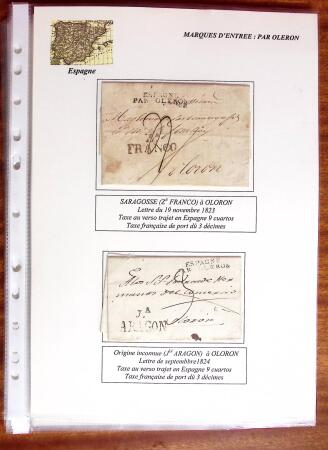 MARQUES D'ENTREE : PAR OLERON
Espagne
ESPAGNE
PAR OLERON
FRANCO
oloron
SARAGOSSE (Zª FRANCO) à OLORON
Lettre du 19 novembre 1823
Taxe au verso trajet en Espagne 9 cuartos
Taxe française de port dû 3 décimes
ESPAGNE
OLERON
JA
ARAGON
oloron
Origine inconnue (Jª ARAGON) à OLORON
Lettre de septembbre1824
Taxe au verso trajet en Espagne 9 cuartos
Taxe française de port dû 3 décimes